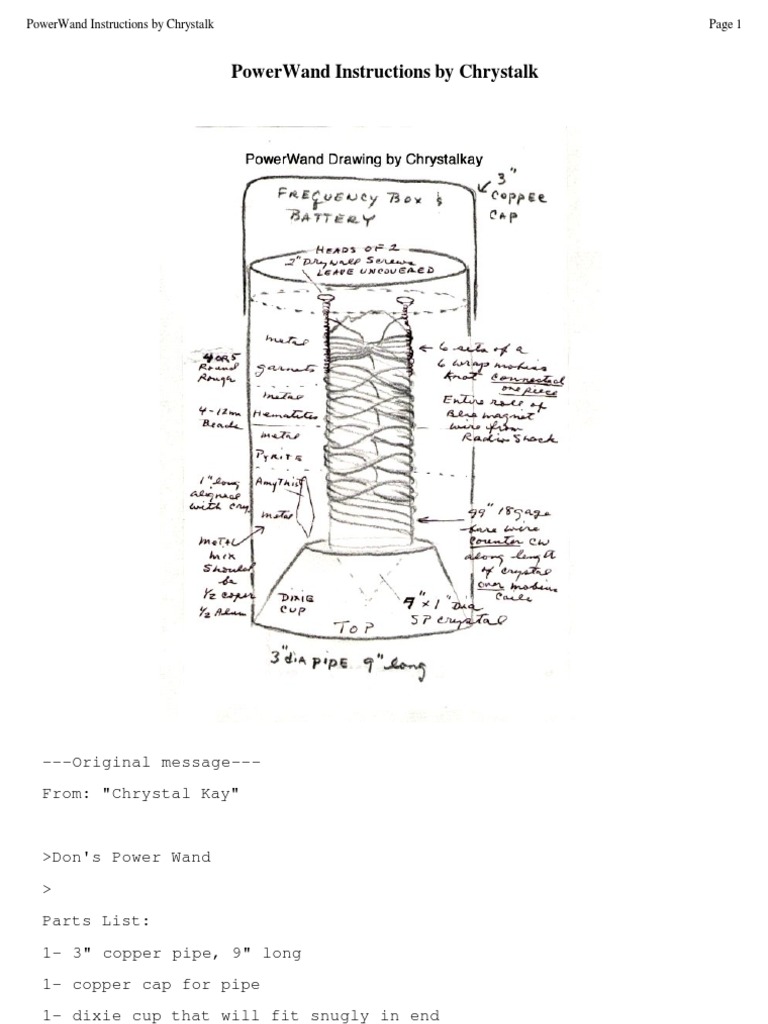 PowerWand Instructions by Chrystalk
Page 1
PowerWand Instructions by Chrystalk
PowerWand Drawing by Chrystalkay
3"
COPPER
CAP
FREQUENCY BOX &
BATTERY
HEADS OF 2
2" DRYWALL SCREWS
LEAVE UNCOVERED
metal
4 OR 5
Round
Rough
garnets
metal
4-12mm
Beads
Hematites
metal
PYRITE
1" long
aligned
with cry
AmyThist
metal
METAL
MIX
Should
be
1/2 coper
1/2 Alum
6 sets of a
6 wrap mobius
Knot connected
one piece
Entire roll of
Blue magnet
wire from
Radio Shack
99" 18 gage
bare wire
counter CW
along length
of crystal
over mobius
coils
DIXIE
CUP
9" x 1" Dia
SP crystal
TOP
3" dia PIPE 9" long
---Original message---
From: "Chrystal Kay"
>Don's Power Wand
>
Parts List:
1- 3" copper pipe, 9" long
1- copper cap for pipe
1- dixie cup that will fit snugly in end